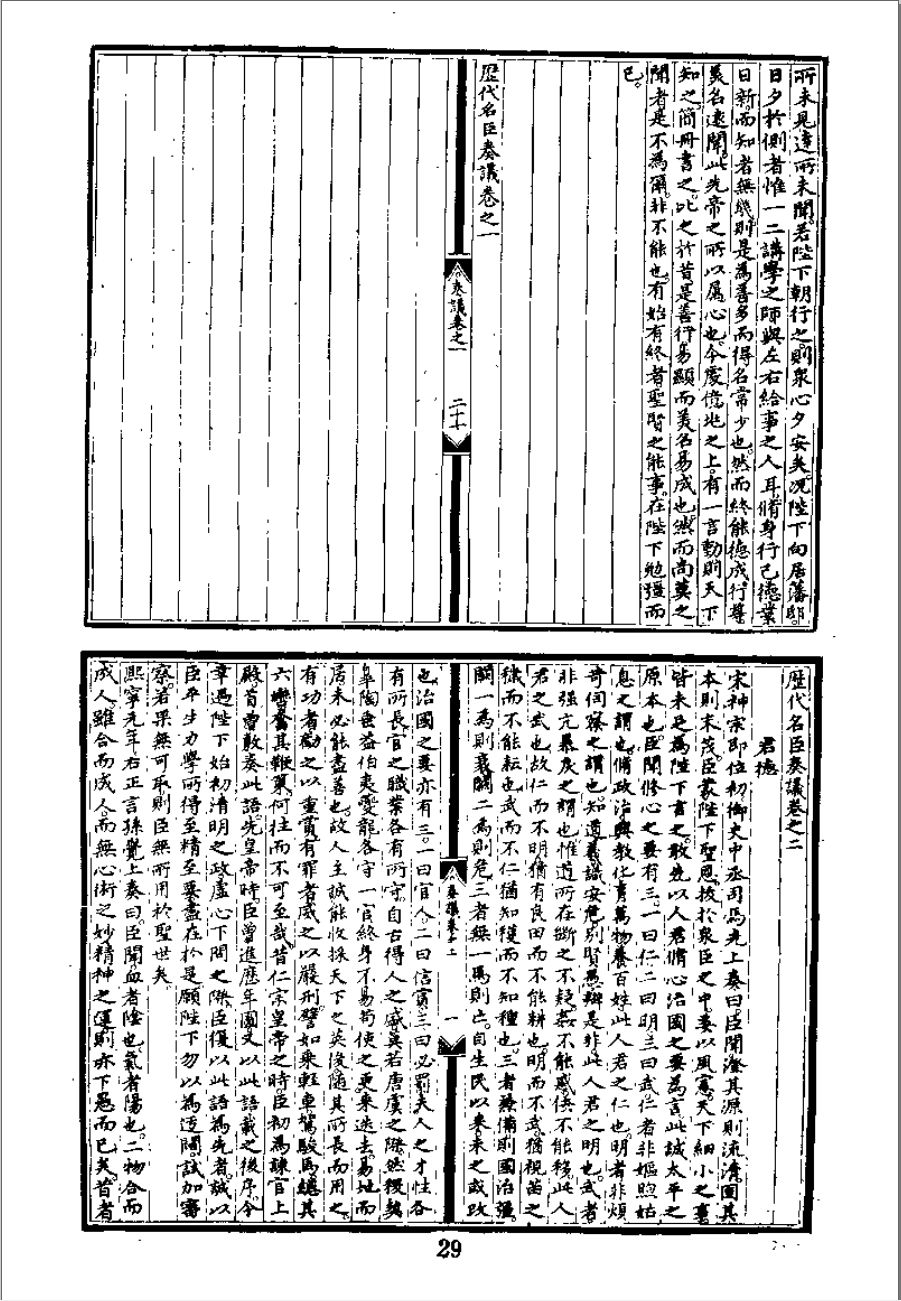 所未見達所未聞若陛下朝行之則衆心夕安矣况陛下向居藩邸
日夕於側者惟一二講學之師與左右給事之人耳脩身行己德業
日新而知者無幾則是為善多而得名常少也然而終能德成行尊
美名遠聞此先帝之所以屬心也今處億兆之上有一言動則天下
知之簡冊書之比之於昔是善行易顯而美名易成也然而尚冀之
聞者是不為爾非不能也有始有終者聖賢之能事在陛下勉彊而
已
歷代名臣奏議卷之一
奏議卷之一
二十
歷代名臣奏議卷之二
君德
宋神宗即位初御史中丞司馬光上奏曰臣聞澄其源則流清固其
本則末茂臣蒙陛下聖恩拔於衆臣之中委以風憲天下細小之事
皆未足為陛下言之敢先以人君脩心治國之要為言此誠太平之
原本也臣聞修心之要有三一曰仁二曰明三曰武仁者非嫗煦姑
息之謂也脩政治興教化育萬物養百姓此人君之仁也明者非煩
苛伺察之謂也知道義識安危別賢愚辨是非此人君之明也武者
非强亢暴戾之謂也惟道所在斷之不疑姦不能惑佞不能移此人
君之武也故仁而不明猶有良田而不能耕也明而不武猶視苗之
穢而不能耘也武而不仁猶知穫而不知種也三者兼備則國治彊
闕一焉則衰闕二焉則危三者無一焉則亡自生民以來未之或改
也治國之要亦有三一曰官人二曰信賞三曰必罰夫人之才性各
有所長官之職業各有所守自古得人之盛莫若唐虞之際然稷契
皐陶垂益伯夷夔龍各守一官終身不易苟使之更來迭去易地而
居未必能盡善也故人主誠能收採天下之英俊隨其所長而用之
有功者勸之以重賞有罪者威之以嚴刑譬如乘輕車駕駿馬總其
六轡奮其鞭策何往而不可至哉昔仁宗皇帝之時臣初為諫官上
殿首曾敷奏此語先皇帝時臣曾進歷年圖又以此語載之後序今
幸遇陛下始初清明之政虛心下問之際臣復以此語為先者誠以
臣平生力學所得至精至要盡在於是願陛下勿以為迂闊試加審
察若果無可取則臣無所用於聖世矣
熙寧元年右正言孫覺上奏曰臣聞血者陰也氣者陽也二物合而
成人雖合而成人而無心術之妙精神之運則亦下愚而已矣昔者
一
29